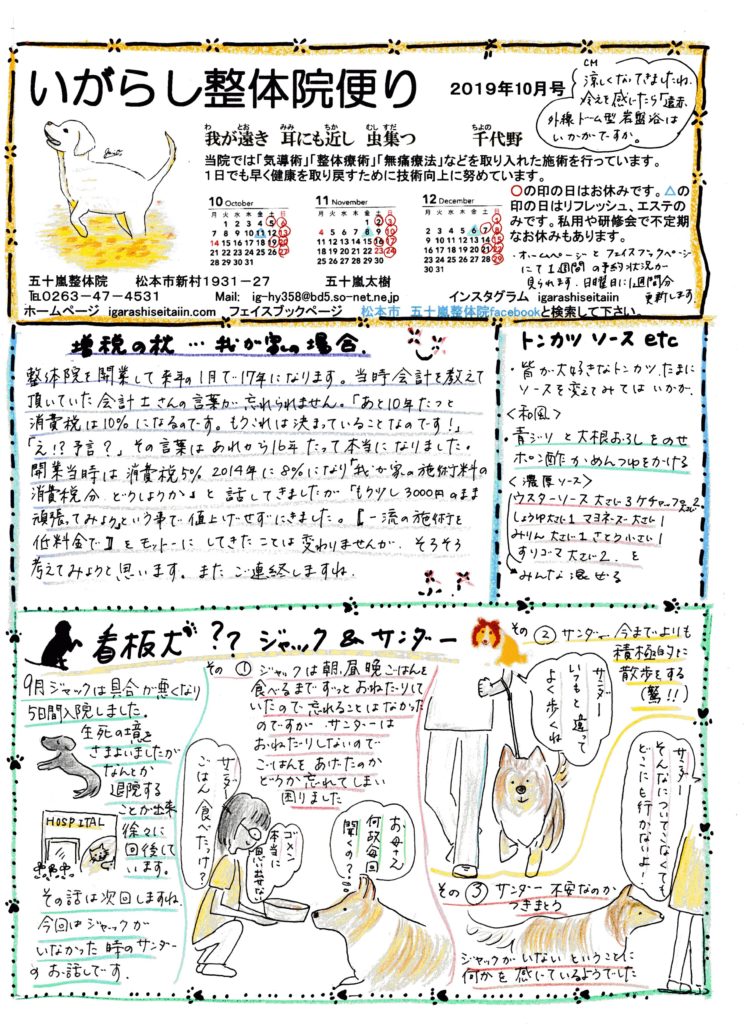 いがらし整体院便り 2019年10月号
CM
涼しくなってきましたね。
冷えを感じたら「遠赤
外線ドーム型岩盤浴は
いかがですか。
わ とお みみ ちか むし すだ ちよの
我が遠き 耳にも近し 虫集つ 千代野
当院では「気導術」「整体療術」「無痛療法」などを取り入れた施術を行っています。
1日でも早く健康を取り戻すために技術向上に努めています。
10 October
月 火 水 木 金 土 日
1 2 3 4 5 6
7 8 9 10 11 12 13
14 15 16 17 18 19 20
21 22 23 24 25 26 27
28 29 30 31
11 November
月 火 水 木 金 土 日
1 2 3
4 5 6 7 8 9 10
11 12 13 14 15 16 17
18 19 20 21 22 23 24
25 26 27 28 29 30
12 December
月 火 水 木 金 土 日
1
2 3 4 5 6 7 8
9 10 11 12 13 14 15
16 17 18 19 20 21 22
23 24 25 26 27 28 29
30 31
○の印の日はお休みです。△の
印の日はリフレッシュ、エステの
みです。私用や研修会で不定期
なお休みもあります。
・ホームページとフェイスブックページ
にて1週間の予約状況が
見られます。日曜日に1週間分
更新します
五十嵐整体院 松本市新村1931-27 五十嵐太樹
℡0263-47-4531 Mail: ig-hy358@bd5.so-net.ne.jp インスタグラム igarashiseitaiin
ホームページ igarashiseitaiin.com フェイスブックページ 松本市 五十嵐整体院facebookと検索して下さい。
増税の秋…我が家の場合。
整体院を開業して来年の1月で17年になります。当時会計を教えて
頂いていた会計士さんの言葉が忘れられません。「あと10年たつと
消費税は10%になるのです。もうこれは決まっていることなのです!」
「え!?予言?」その言葉はあれから16年たって本当になりました。
開業当時は消費税5% 2014年に8%になり「我が家の施術料の
消費税分どうしようか」と話してきましたが「もう少し3000円のまま
頑張ってみよう」という事で値上げせずにきました。【一流の施術を
低料金で】をモットーにしてきたことは変わりませんが、そろそろ
考えてみようと思います。またご連絡しますね。
トンカツソースetc
・皆が大好きなトンカツ、たまに
ソースを変えてみてはいかが。
<和風>
・青ジソと大根おろしをのせ
ポン酢かめんつゆをかける
<濃厚ソース>
ウスターソース大さじ3 ケチャップ大さじ2
しょうゆ大さじ1 マヨネーズ大さじ1
みりん大さじ1 さとう小さじ1
すりゴマ大さじ2 を
みんな混ぜる
看板犬?? ジャック&サンダー
9月ジャックは具合が悪くなり
5日間入院しました。
生死の境を
さまよいましたが
なんとか
退院する
ことが出来
徐々に
回復して
います。
HOSPITAL
その話は次回しますね。
今回はジャックが
いなかった時のサンダー
のお話しです。
その①ジャックは朝、昼、晩ごはんを
食べるまでずっとおねだりして
いたので忘れることはなかった
のですが サンダーは
おねだりしないので
ごはんをあげたのか
どうか忘れてしまい
困りました
サンダー
ごはん食べたっけ?
ゴメン
本当に
思い出せない
お母さん
何故毎回
聞くの?
その②サンダー今までよりも
積極的に
散歩をする
(驚!!)
サンダー
いつもと違って
よく歩くね
サンダー
そんなについてこなくても
どこにも行かないよ!
その③サンダー不安なのか
つきまとう
ジャックがいないということに
何かを感じているようでした